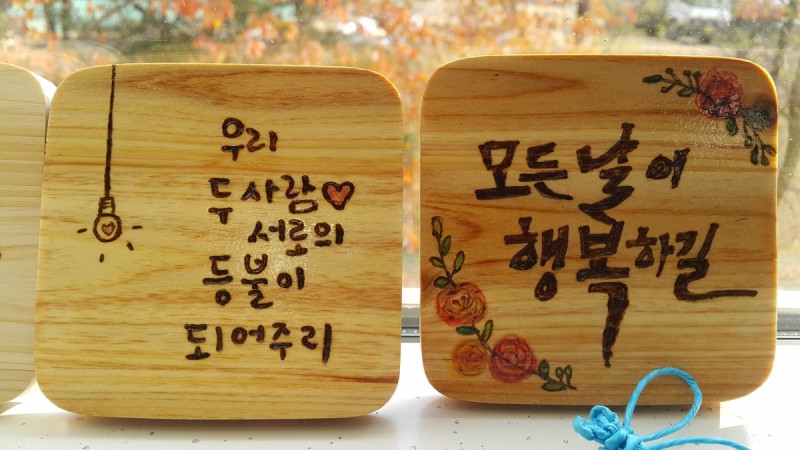 우리
두사람
서로의
등불이
되어주리
모든날이
행복하길